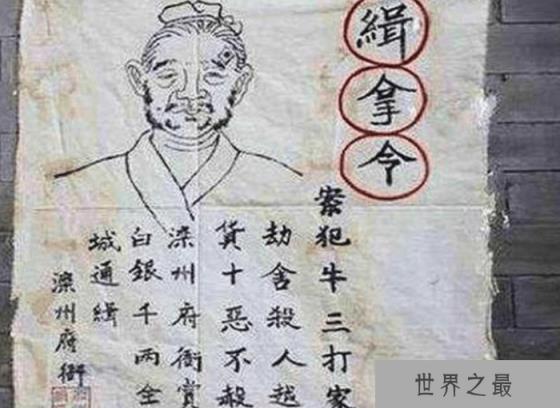 緝拿令
案犯牛三打家
劫舍殺人越
貨十惡不赦
滦州府衙賞
白銀千两全
城通緝
滦州府衙
世界之最